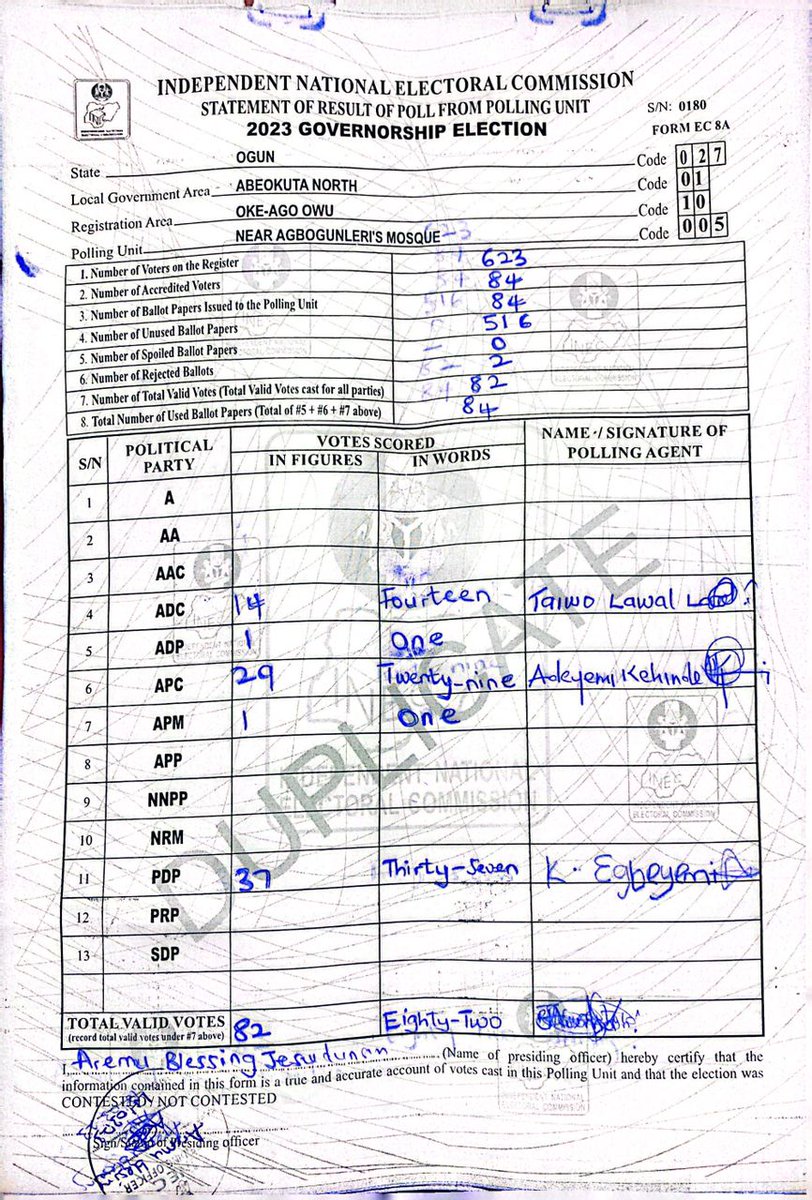 INDEPENDENT NATIONAL ELECTORAL COMMISSION
STATEMENT OF RESULT OF POLL FROM POLLING UNIT
S/N: 0180
2023 GOVERNORSHIP ELECTION
FORM EC 8A
State OGUN Code 027
Local Government Area ABEOKUTA NORTH Code 01
Registration Area OKE-AGO OWU Code 10
Polling Unit NEAR AGBOGUNLERI'S MOSQUE Code 005
1. Number of Voters on the Register 623
2. Number of Accredited Voters 84
3. Number of Ballot Papers Issued to the Polling Unit 84
4. Number of Unused Ballot Papers 516
5. Number of Spoiled Ballot Papers 0
6. Number of Rejected Ballots 2
7. Number of Total Valid Votes (Total Valid Votes cast for all parties) 82
8. Total Number of Used Ballot Papers (Total of #5 + #6 + #7 above) 84
S/N POLITICAL PARTY VOTES SCORED NAME / SIGNATURE OF POLLING AGENT
IN FIGURES IN WORDS
1 A
2 AA
3 AAC
4 ADC 14 Fourteen Taiwo Lawal
5 ADP 1 One
6 APC 29 Twenty-nine Adeyemi Kehinde
7 APM 1 One
8 APP
9 NNPP
10 NRM
11 PDP 37 Thirty-Seven K. Egbeyemi
12 PRP
13 SDP
TOTAL VALID VOTES 82 Eighty-Two
(record total valid votes under #7 above)
I, Aremu Blessing Jesudunan (Name of presiding officer) hereby certify that the
information contained in this form is a true and accurate account of votes cast in this Polling Unit and that the election was
CONTESTED/ NOT CONTESTED
Sign/ of Presiding officer
DUPLICATE
INDEPENDENT NATIONAL
ELECTORAL COMMISSION